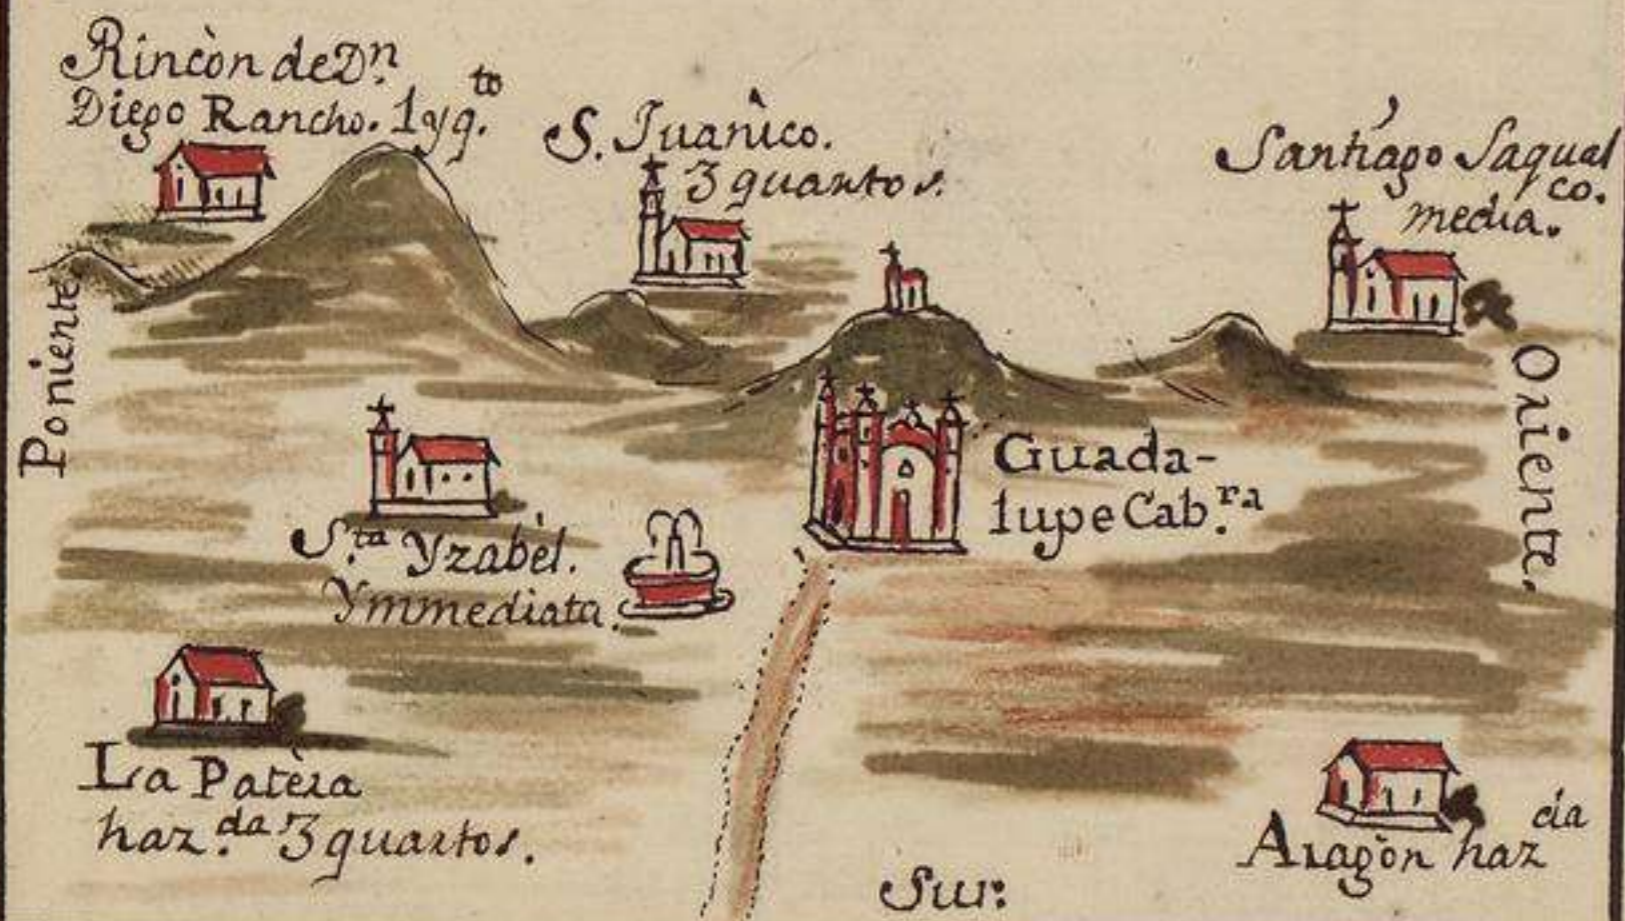 Rincòn de Dn.
Diego Rancho. 1 y q.to
S. Juanìco.
3 quartos.
Santiago Saqual
co.
media.
Poniente
Oriente.
Guada-
lupe Cab.ra
S.ta Yzabèl.
Ymmediata.
La Patèra
haz.da 3 quartos.
Aragòn hazda
Sur: